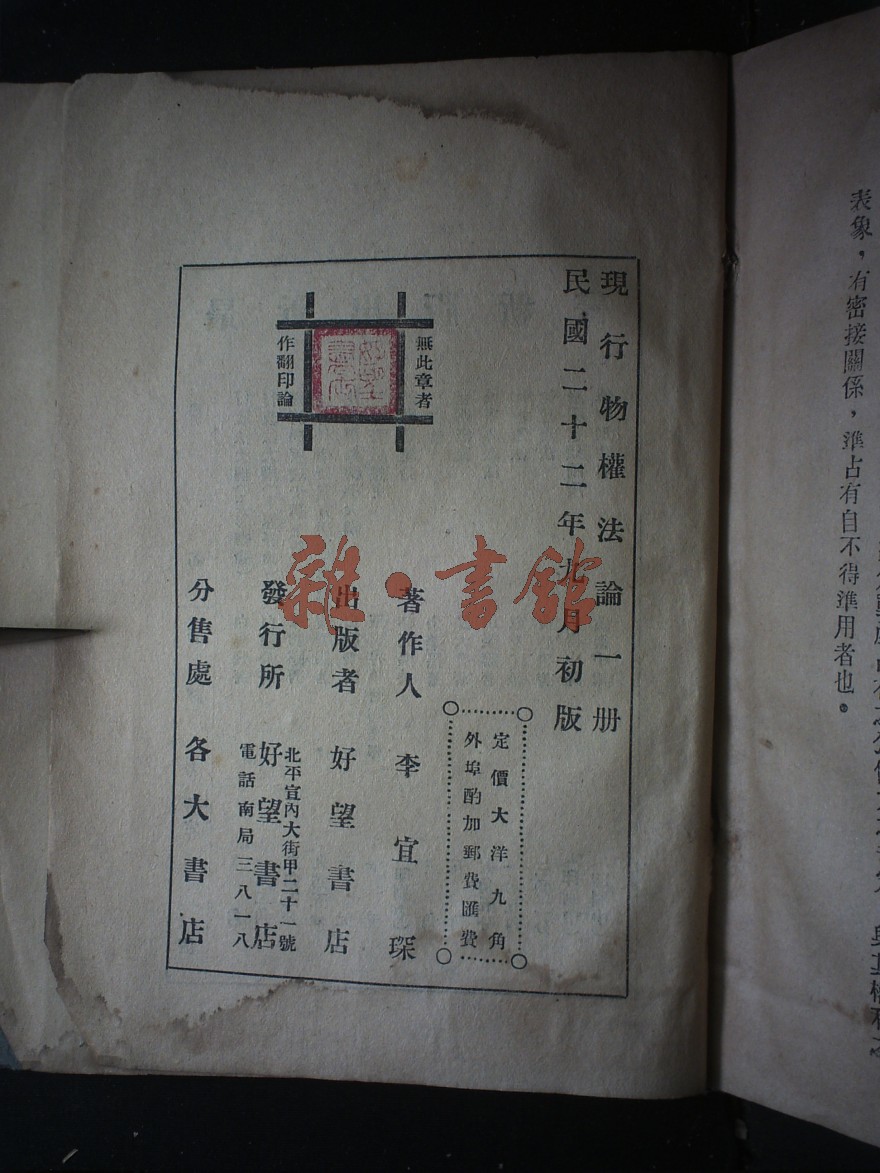 表象，有密接關係，準占有自不得準用者也。
現行物權法論一册
民國二十二年九月初版
定價大洋九角
外埠酌加郵費匯費
無此章者
作翻印論
著作人 李宜琛
出版者 好望書店
發行所 好望書店
北平宣內大街甲二十一號
電話南局三八一八
分售處 各大書店
雜·書館